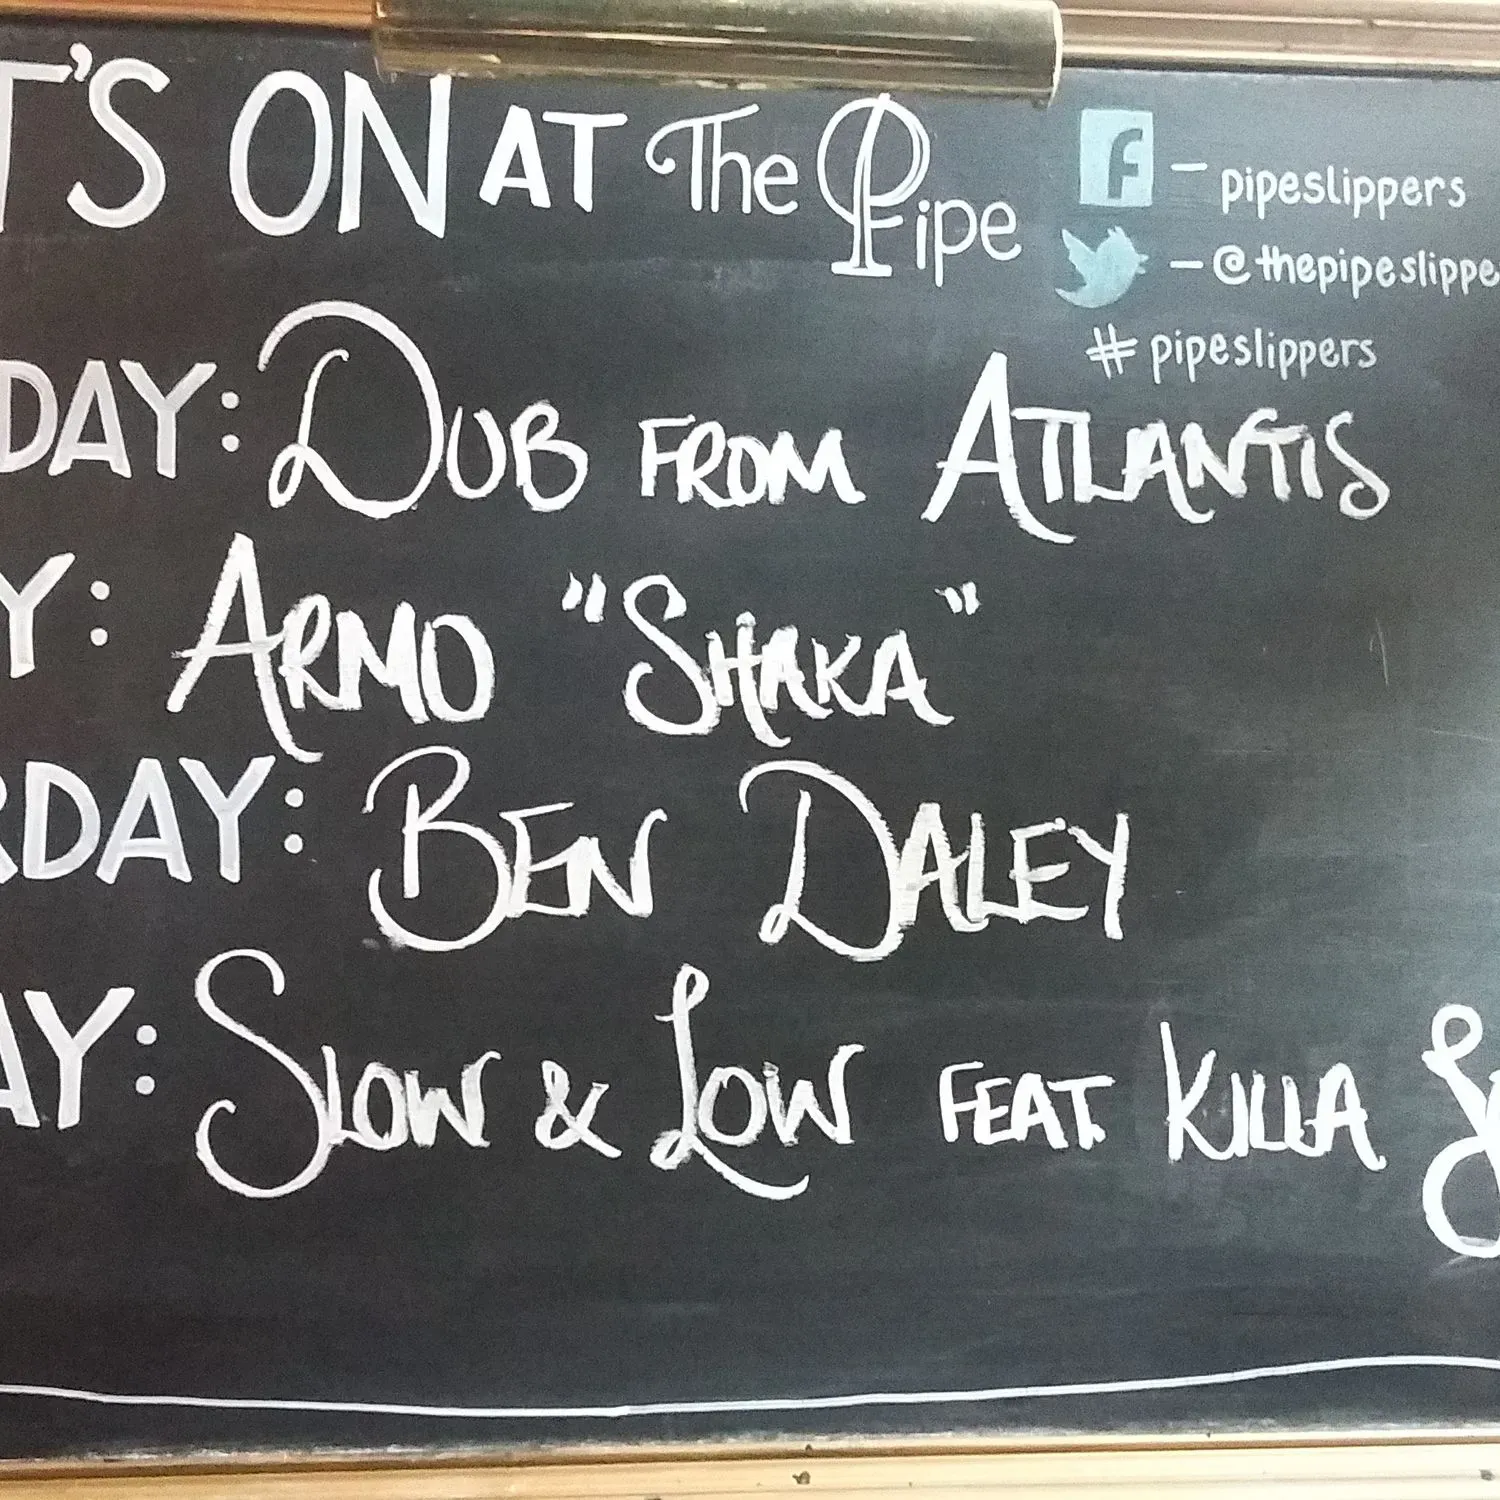 T'S ON AT The Pipe
f - pipeslippers
- @thepipeslippe
#pipeslippers
DAY: DUB FROM ATLANTIS
Y: ARMO "SHAKA"
RDAY: BEN DALEY
AY: SLOW & LOW FEAT. KILLA S